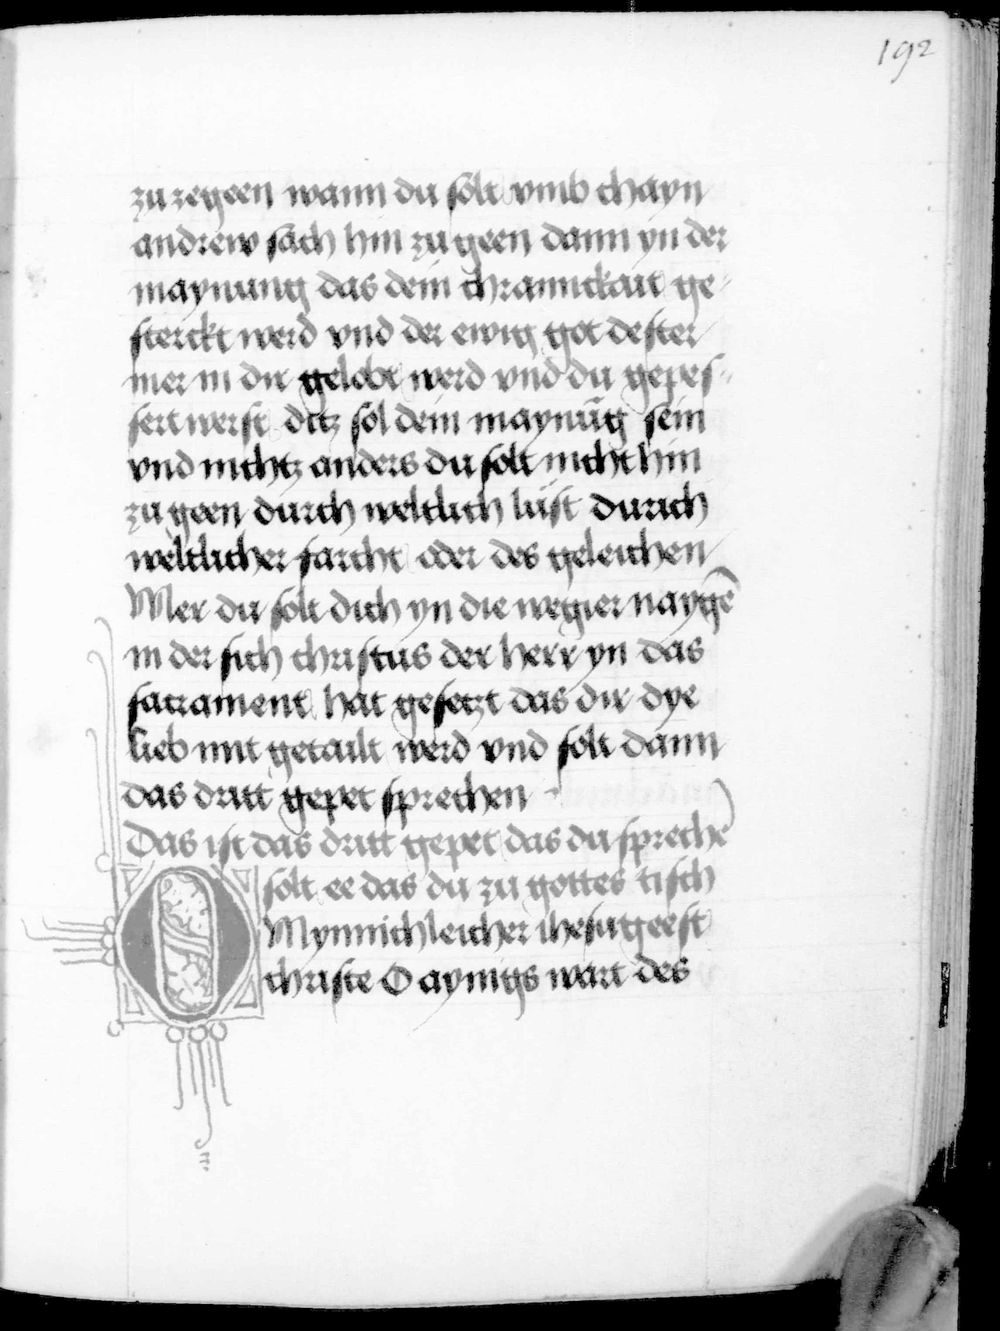 192
zu zegeen wann du solt vmb chayn
andrew sach hin zu geen dann yn der
maynung das dein chrannckait ge-
sterckt werd vnd der ewig got dester
mer in dir gelobt werd vnd du gepes-
sert werst ditz sol dein maynūg sein
vnd nichtz anders du solt nicht hin
zu geen durch weltlich lüst durich
weltlicher farcht oder des geleichen
Mer du solt dich yn die wegier naygē
in der sich christus der herr yn das
sacrament hat gesetzt das dir dye
lieb mit getailt werd vnd solt dann
das dritt gepet sprechen
Das ist das dritt gepet das du sprechē
solt ee das du zu gottes tisch
O Mynnichleicher ihesu geest
christe O aynigs wart des